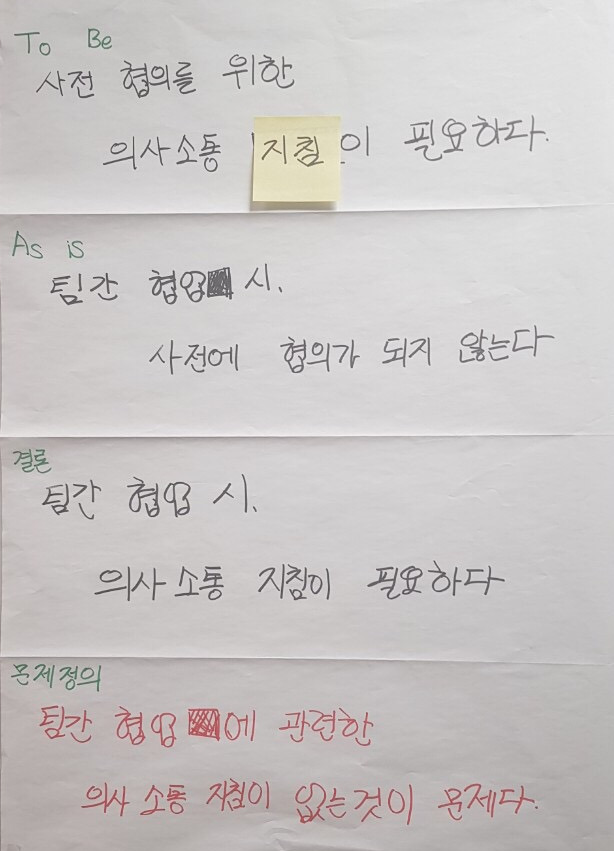 To Be
사전 협의를 위한
의사소통 지침이 필요하다.
As is
팀간 협업 시,
사전에 협의가 되지 않는다
결론
팀간 협업 시,
의사소통 지침이 필요하다
문제정의
팀간 협업에 관련한
의사소통 지침이 없는것이 문제다.